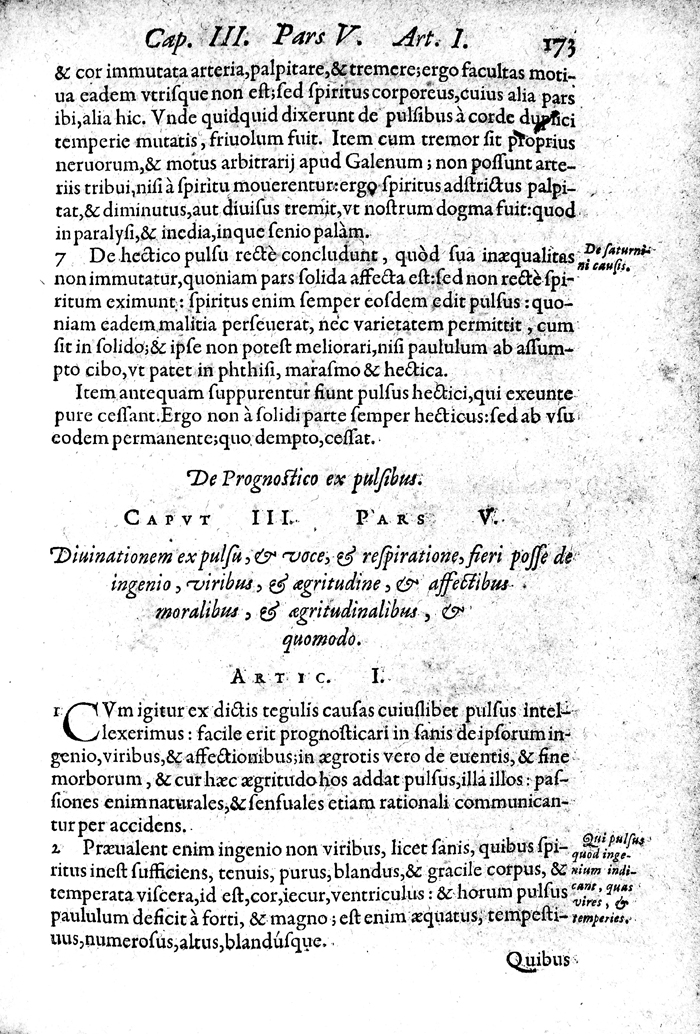 Cap. III. Pars V. Art. I. 173
& cor immutata arteria, palpitare, & tremere; ergo facultas moti-
ua eadem vtrisque non est; sed spiritus corporeus, cuius alia pars
ibi, alia hic. Vnde quidquid dixerunt de pulsibus à corde duplici
temperie mutatis, friuolum fuit. Item cum tremor sit proprius
neruorum, & motus arbitrarij apud Galenum; non possunt arte-
riis tribui, nisi à spiritu mouerentur: ergo spiritus adstrictus palpi-
tat, & diminutus, aut diuisus tremit, vt nostrum dogma fuit: quod
in paralysi, & inedia, inque senio palàm.
7 De hectico pulsu rectè concludunt, quòd sua inæqualitas
non immutatur, quoniam pars solida affecta est: sed non rectè spi-
ritum eximunt: spiritus enim semper eosdem edit pulsus: quo-
niam eadem malitia perseuerat, nec varietatem permittit, cum
sit in solido; & ipse non potest meliorari, nisi paululum ab assum-
pto cibo, vt patet in phthisi, marasmo & hectica.
De saturni-
ni causis.
Item antequam suppurentur fiunt pulsus hectici, qui exeunte
pure cessant. Ergo non à solidi parte semper hecticus: sed ab vsu
eodem permanente; quo dempto, cessat.
De Prognostico ex pulsibus.
CAPVT III. PARS V.
Diuinationem ex pulsu, & voce, & respiratione, fieri posse de
ingenio, viribus, & ægritudine, & affectibus
moralibus, & ægritudinalibus, &
quomodo.
ARTIC. I.
1 CVm igitur ex dictis regulis causas cuiuslibet pulsus intel-
lexerimus: facile erit prognosticari in sanis de ipsorum in-
genio, viribus, & affectionibus; in ægrotis vero de euentis, & fine
morborum, & cur hæc ægritudo hos addat pulsus, illa illos: pas-
siones enim naturales, & sensuales etiam rationali communican-
tur per accidens.
2 Præualent enim ingenio non viribus, licet sanis, quibus spi-
ritus inest sufficiens, tenuis, purus, blandus, & gracile corpus, &
temperata viscera, id est, cor, iecur, ventriculus: & horum pulsus
paululum deficit à forti, & magno; est enim æquatus, tempesti-
uus, numerosus, altus, blandúsque.
Qui pulsus
quod inge-
nium indi-
cant, quas
vires, &
temperies.
Quibus